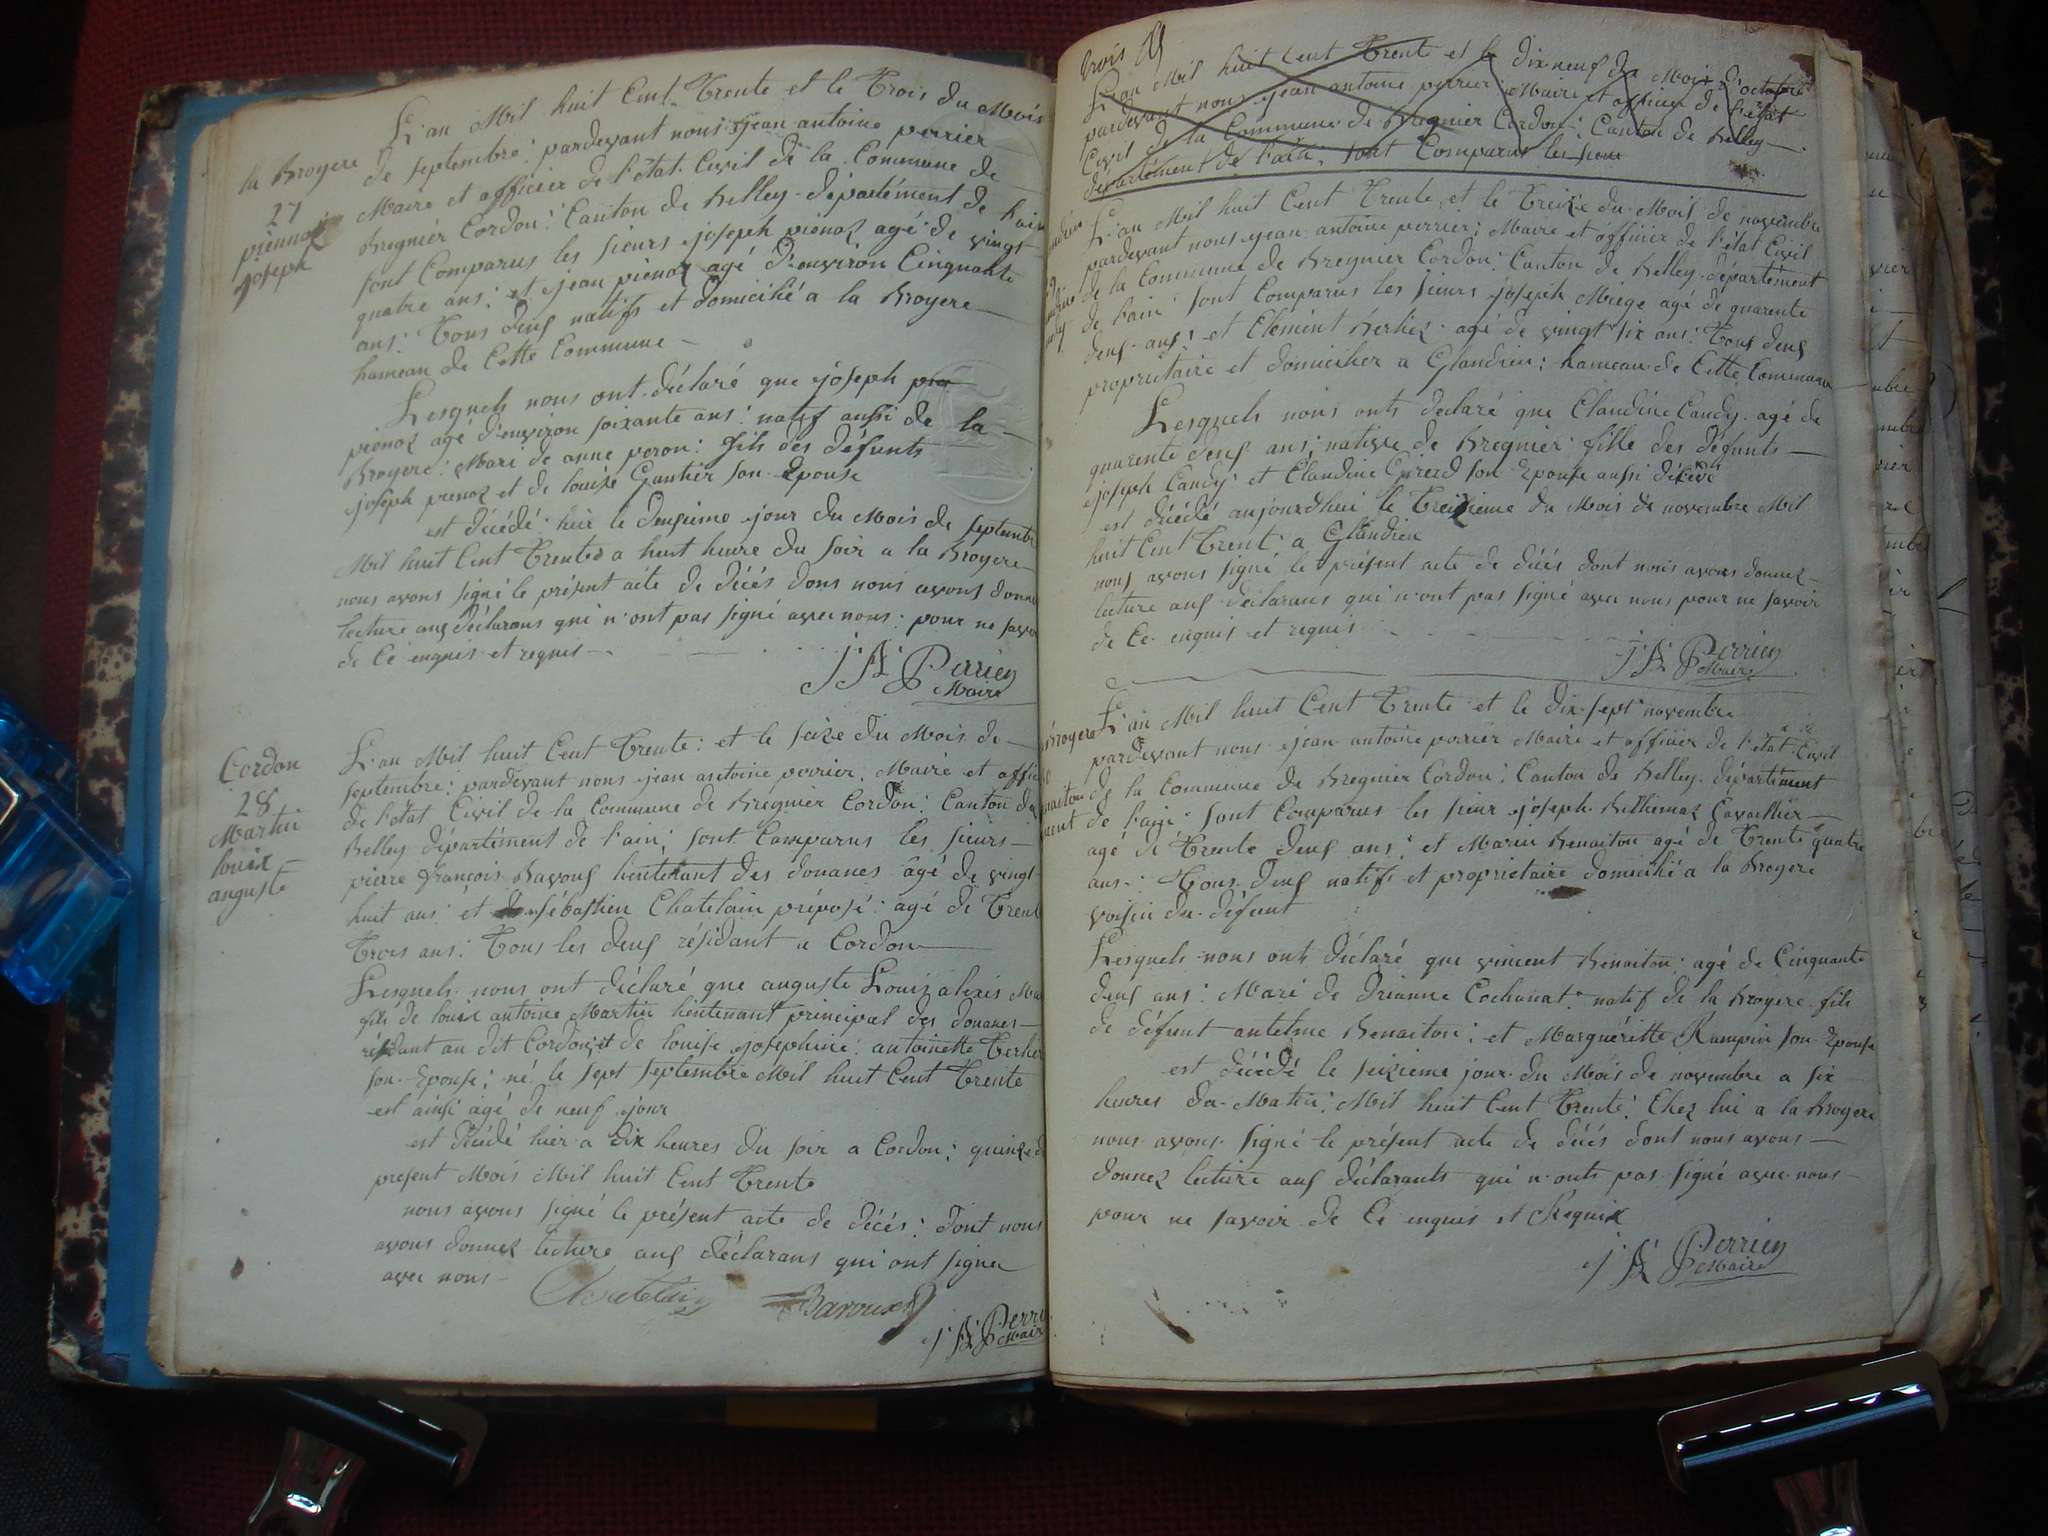 L'an Mil huit Cent Trente et le Trois du Mois
la Broyere de septembre: pardevant nous jean antoine perrier
27 Maire et officier de l'état Civil de la Commune de
piennoz Bregnier Cordon: Canton de Belley département de l'ain
joseph sont Comparus les sieurs joseph pienoz agé de vingt
quatre ans: et jean pienoz agé d'environ Cinquante
ans: Tous deus natifs et domicihé a la Broyere
hameau de Cette Commune
Lesquels nous ont déclaré que joseph
pienoz agé d'environ soixante ans: natif aussi de la
Broyere: Mari de anne peron: fils des défunts
joseph pienoz et de louise Gantier son Epouse
est décédé hier le deusieme jour du Mois de septembre
Mil huit Cent Trente a huit heure du soir a la Broyere
nous avons signé le présent acte de décés dons nous avons donné
lecture aus déclarans qui n'ont pas signé avec nous: pour ne savoir
de Ce enquis et requis
J A Perrier
Maire
Cordon L'an Mil huit Cent Trente: et le seize du Mois de
28 septembre: pardevant nous jean antoine perrier, Maire et officier
Martin de l'état Civil de la Commune de Bregnier Cordon: Canton de
louix Belley département de l'ain; sont Comparus les sieurs
auguste pierre françois Bavous lieutenant des douanes âgé de vingt
huit ans: et sébastien Chatelain préposé: agé de Trente
Trois ans: Tous les deus résidant a Cordon
Lesquels nous ont déclaré que auguste Louix alexis Mar
fils de louix antoine Martin lieutenant principal des douanes
résidant au dit Cordon, et de louise josephine: antoinette
son Epouse; né le sept septembre Mil huit Cent Trente
est ainsi agé de neuf jour
est décédé hier a dix heures du soir a Cordon; quinze du
present Mois Mil huit Cent Trente
nous avons signé le présent acte de décés: dont nous
avons donnez lecture aus déclarans qui ont signer
avec nous
Chatelain Barous J A Perrier
Maire
trois
L'an Mil huit Cent Trente et le dix neuf du Mois d'octobre
pardevant nous jean antoine perrier Maire et officier de l'état
Civil de la Commune de Bregnier Cordon: Canton de Belley
département de l'ain, sont Comparus les sieurs
L'an Mil huit Cent Trente et le Treize du Mois de novembre
pardevant nous jean antoine perrier; Maire et officier de l'état Civil
de la Commune de Bregnier Cordon: Canton de Belley département
de l'ain sont Comparus les sieurs joseph Miege agé de quarente
deus ans: et Clement agé de vingt six ans: Tous deus
proprietaire et domiciher a Glandieu: hameau de Cette Commune
Lesquels nous onts declaré que Claudine Candy agé de
quarente deus ans; native de Bregnier fille des défunts
joseph Candy et Claudine son Epouse aussi
est décédé aujourdhui le Treizieme du Mois de novembre Mil
huit Cent Trent a Glandieu
nous avons signé le présent acte de décés dont nous avons donnez
lecture aus declarans qui n'ont pas signé avec nous pour ne savoir
de Ce enquis et requis
J A Perrier
Maire
Broyere L'an Mil huit Cent Trente et le dix sept novembre
pardevant nous jean antoine perrier Maire et officier de l'état Civil
de la Commune de Bregnier Cordon: Canton de Belley département
de l'ain: sont Comparus les sieur joseph Cavaillier
agé de Trente deus ans: et Marin Benaiton agé de Trente quatre
ans: Tous deus natifs et proprietaire domicihé a la Broyere
voisin du défunt
Lesquels nous onts déclaré que vincent Benaiton: agé de Cinquante
deus ans: Mari de Cochonat: natif de la Broyere fils
de défunt antelme Benaiton; et Marguéritte Rampin son Epouse
est décédé le seizieme jour du Mois de novembre a six
heures du Matin: Mil huit Cent Trente: Chez lui a la Broyere
nous avons signé le présent acte de décés dont nous avons
donnez lecture aus déclarants qui n'onts pas signé avec nous
pour ne savoir de Ce enquis et Requix
J A Perrier
Maire